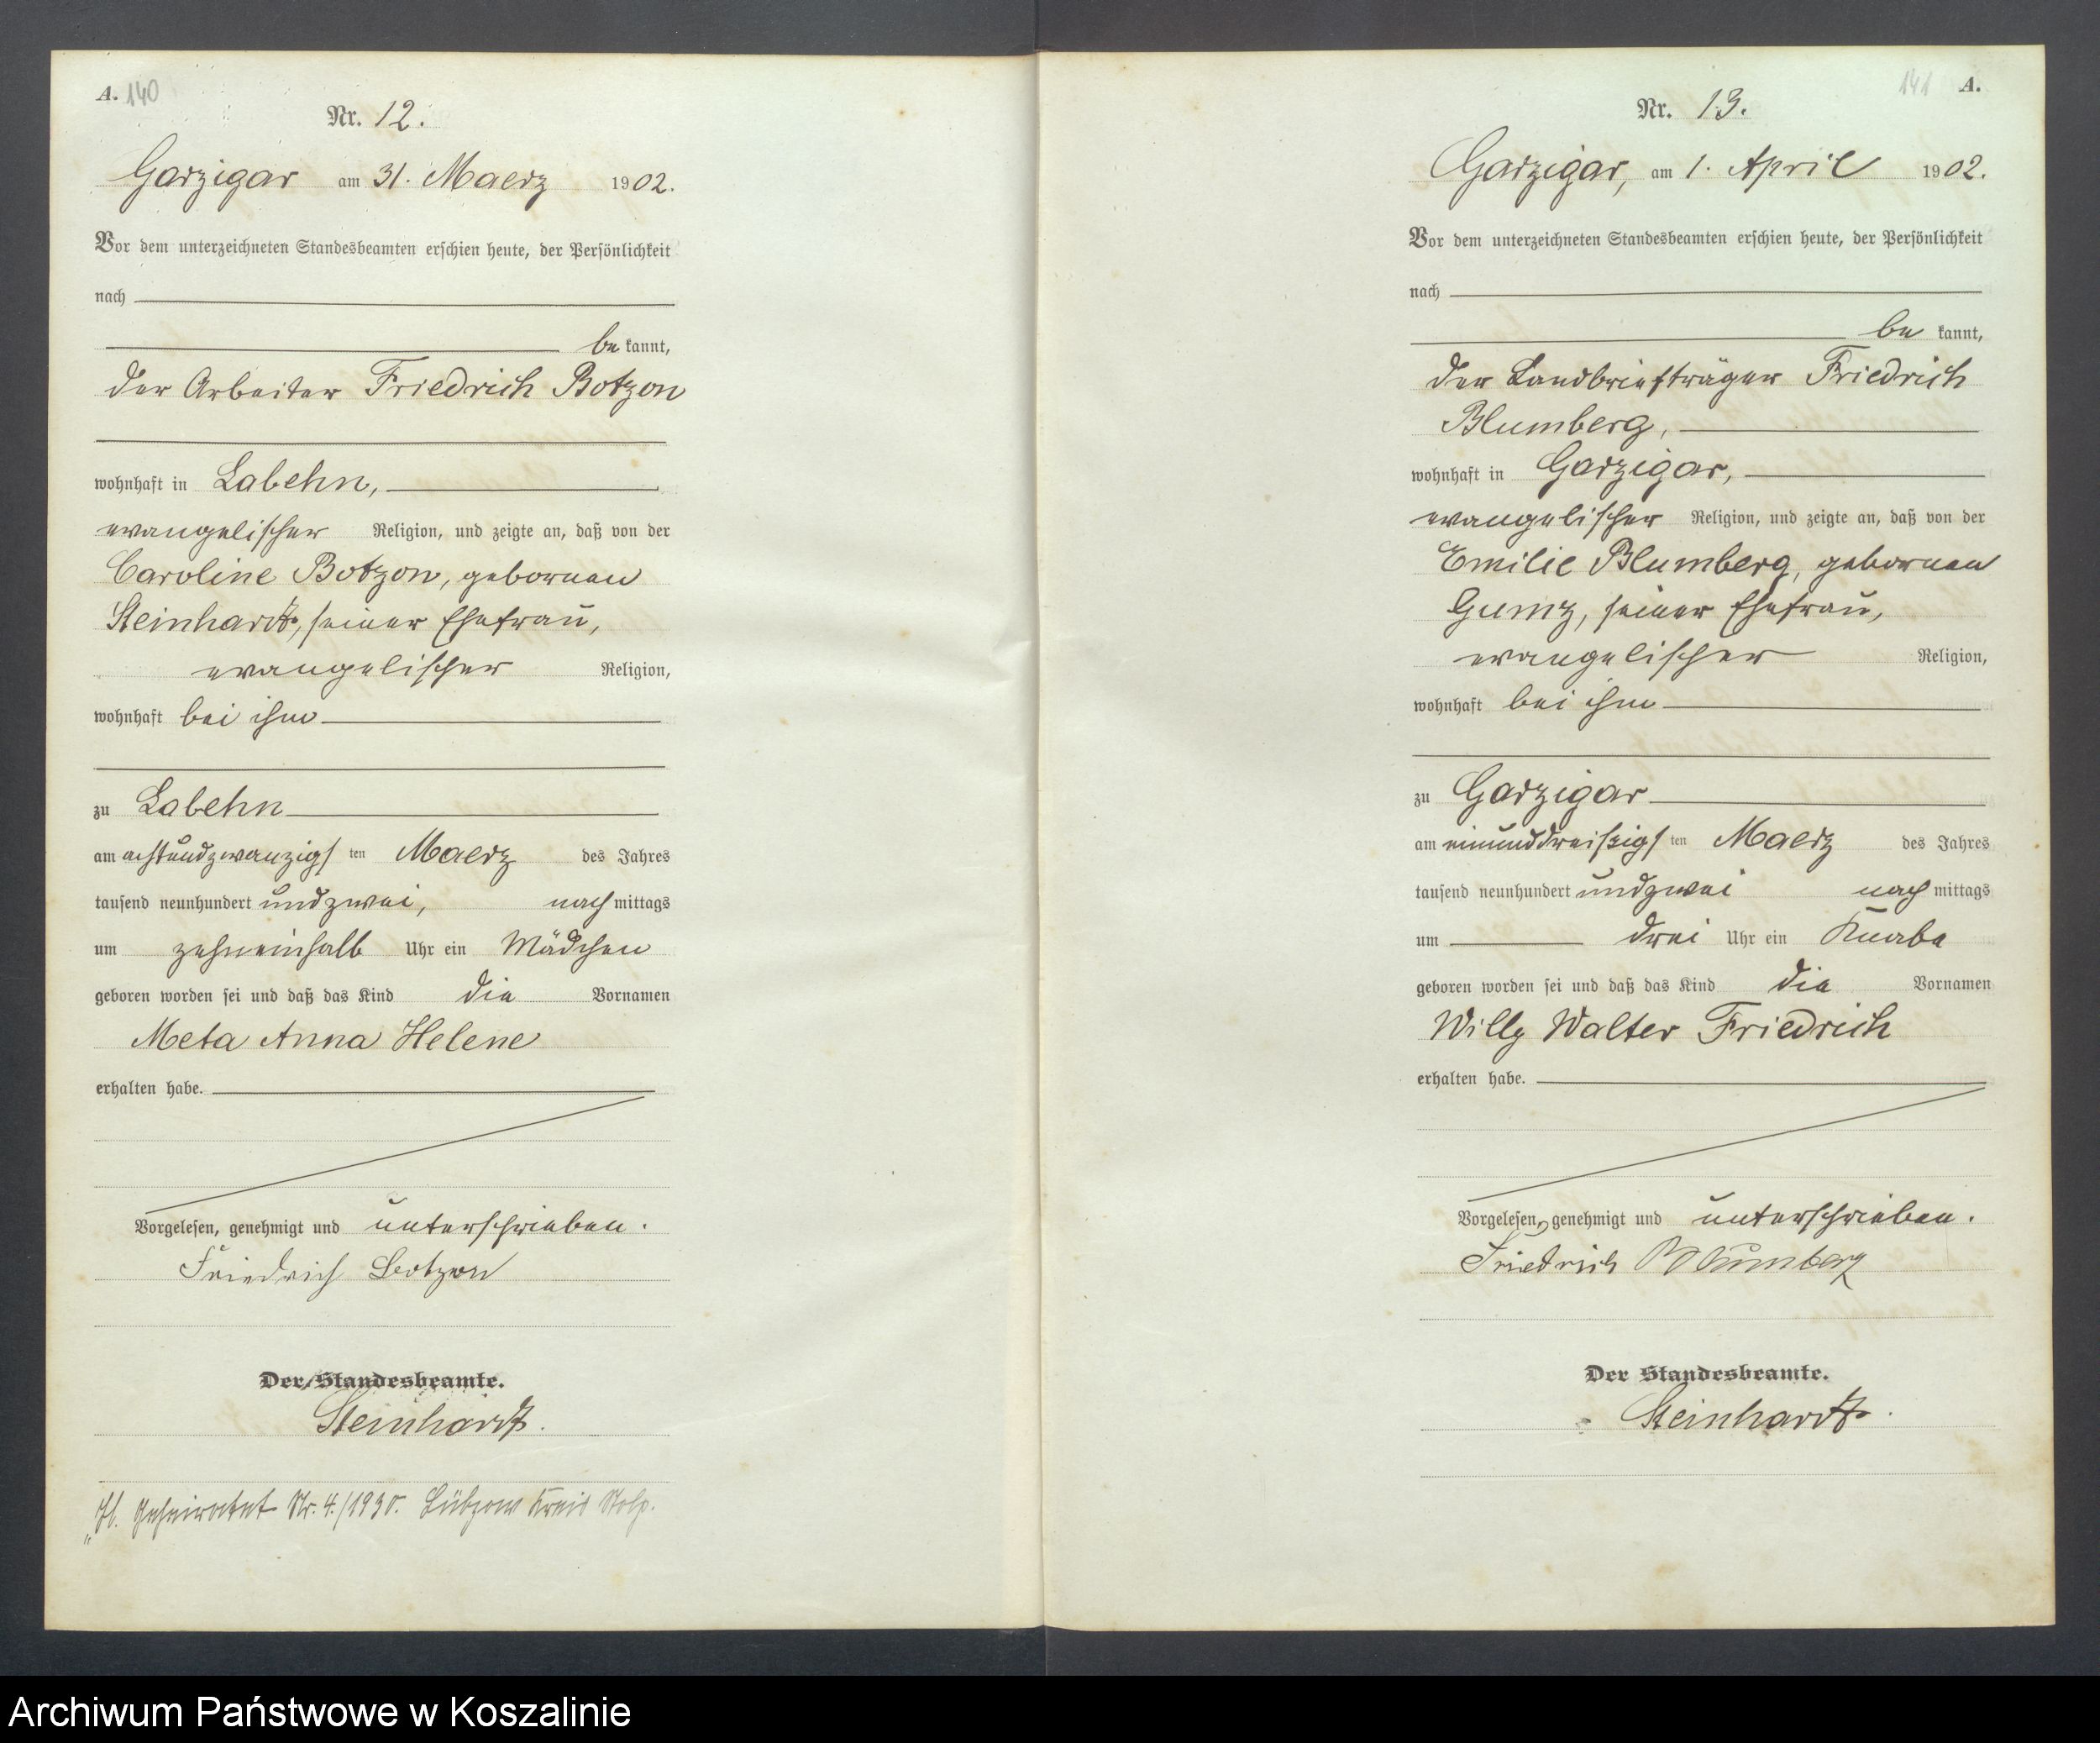 A. 140
Nr. 12.
Garzigar am 31. Maerz 1902.
Vor dem unterzeichneten Standesbeamten erschien heute, der Persönlichkeit
nach
be kannt,
der Arbeiter Friedrich Botzon
wohnhaft in Labehn,
evangelischer Religion, und zeigte an, daß von der
Caroline Botzon, gebornen
Steinhardt, seiner Ehefrau,
evangelischer Religion,
wohnhaft bei ihm
zu Labehn
am achtundzwanzigs ten Maerz des Jahres
tausend neunhundert undzwei, nach mittags
um zehneinhalb Uhr ein Mädchen
geboren worden sei und daß das Kind die Vornamen
Meta Anna Helene
erhalten habe.
Vorgelesen, genehmigt und unterschrieben.
Friedrich Botzon
Der Standesbeamte.
Steinhardt.
Geheiratet Nr. 4./1930. Lübzow Kreis Stolp.
141 A.
Nr. 13.
Garzigar, am 1. April 1902.
Vor dem unterzeichneten Standesbeamten erschien heute, der Persönlichkeit
nach
be kannt,
der Landbriefträger Friedrich
Blumberg,
wohnhaft in Garzigar,
evangelischer Religion, und zeigte an, daß von der
Emilie Blumberg, gebornen
Gumz, seiner Ehefrau,
evangelischer Religion,
wohnhaft bei ihm
zu Garzigar
am einunddreißigs ten Maerz des Jahres
tausend neunhundert undzwei nach mittags
um drei Uhr ein Knabe
geboren worden sei und daß das Kind die Vornamen
Willy Walter Friedrich
erhalten habe.
Vorgelesen, genehmigt und unterschrieben.
Friedrich Blumberg
Der Standesbeamte.
Steinhardt.
Archiwum Państwowe w Koszalinie